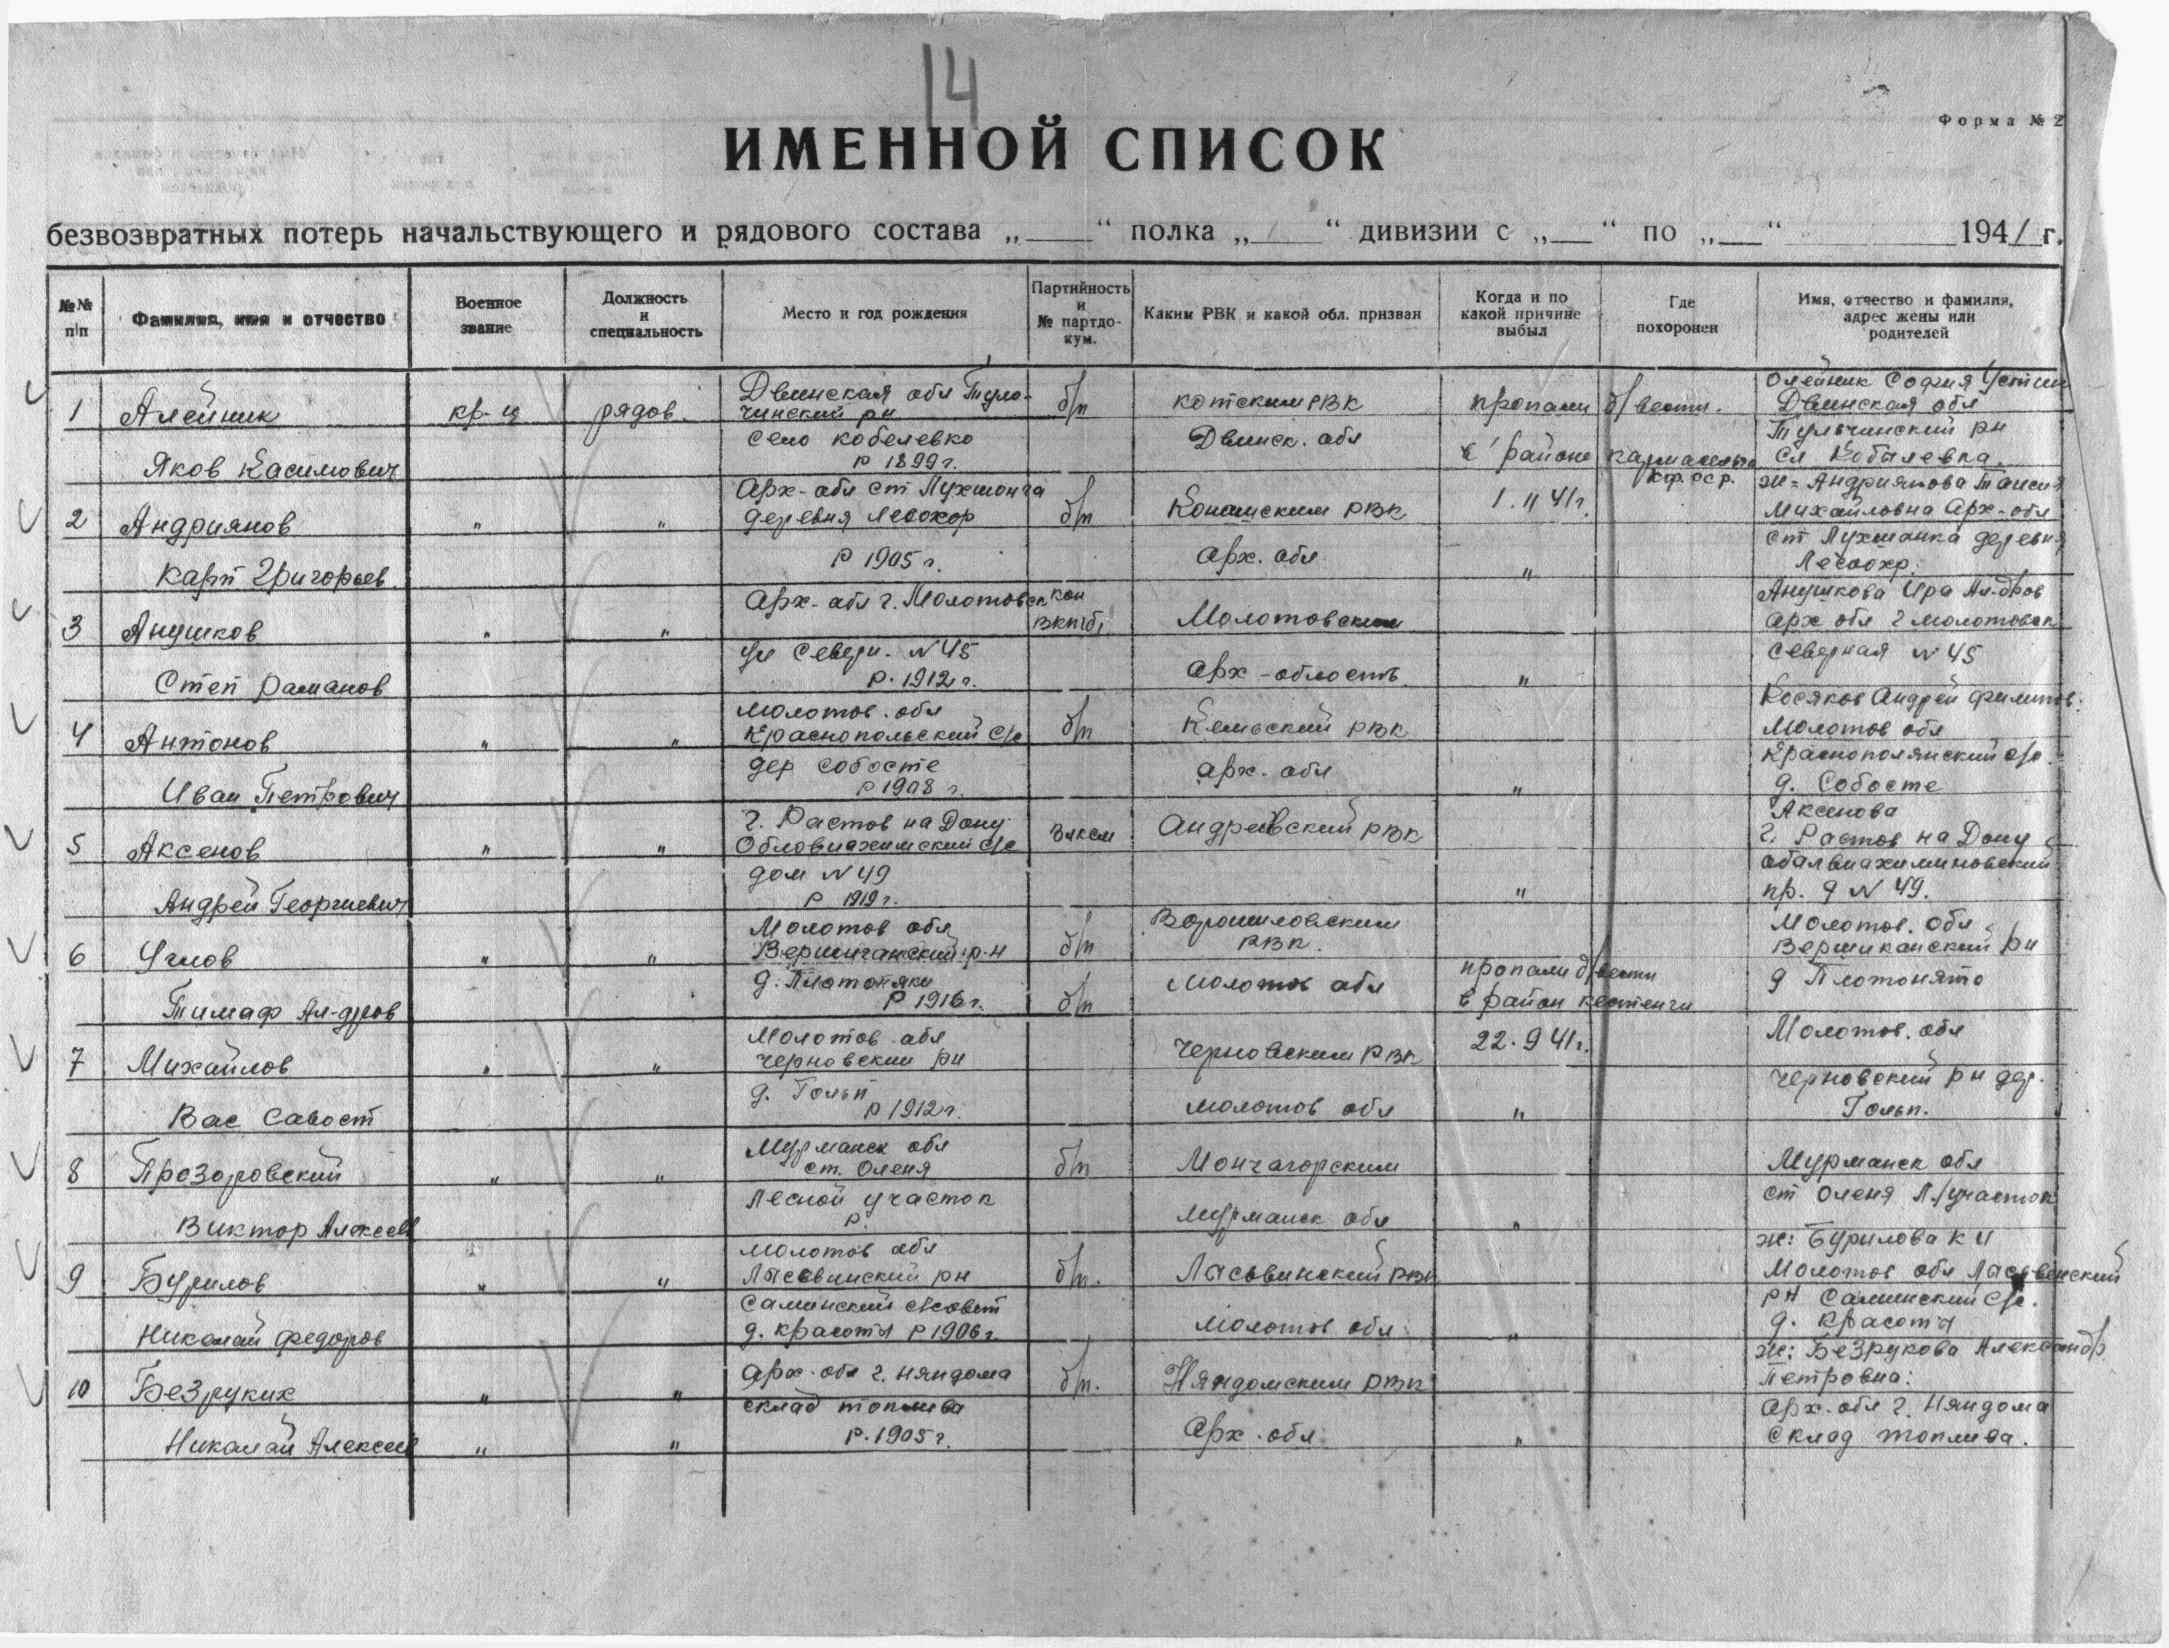 14
Форма № 2
ИМЕННОЙ СПИСОК
безвозвратных потерь начальствующего и рядового состава „ “ полка „ “ дивизии с „ “ по „ “ 1941 г.
№№ п/п
Фамилия, имя и отчество
Военное звание
Должность и специальность
Место и год рождения
Партийность и № партдокум.
Каким РВК и какой обл. призван
Когда и по какой причине выбыл
Где похоронен
Имя, отчество и фамилия, адрес жены или родителей
1
Алейник
Яков Касимович
кр-ц
рядов.
Двинская обл Туло-
чинский рн
село кобелевко
р 1899 г.
б/п
котским РВК
Двинск. обл
пропали б/вести.
в районе
1. 11 41 г.
Олейник София Устин
Двинская обл
Тульчинский рн
сл Кобалевка.
2
Андриянов
Карп Григорьев
"
"
Арх-обл ст Лухтонга
деревня Лесохор
р 1905 г.
б/п
Коношским РВК
Арх. обл
"
ж= Андриянова Таисия
Михайловна Арх-обл
ст Лухтанка деревня
3
Анушков
Степ Раманов
"
"
Арх-обл г. Молотовск
ул Северн. N 45
р. 1912 г.
кан
вкпб
Молотовским
Арх-область
"
Анушкова Ира Ал-дров
Арх обл г Молотовск
Северная N 45
4
Антонов
Иван Петрович
"
"
Молотов. обл
Краснопольский с/с
дер Собосте
р 1908 г.
б/п
РВК
Арх. обл
"
Косяков Андрей Филипов.
Молотов обл
Краснополянский с/с.
д. Собосте
5
Аксенов
Андрей Георгиевич
"
"
г. Растов на Дону
дом N 49
р 1919 г.
влксм
Андреевский РВК
"
Аксенова
г. Растов на Дону
пр. д N 49.
6
Углов
Тимаф Ал-дров
"
"
Молотов обл
р-н
р 1916 г.
б/п
б/п
Ворошиловским
РВК.
Молотов обл
пропали б/вести
в район кестенги
22. 9 41 г.
Молотов. обл
рн
д Плотонято
7
Михайлов
Вас Савост
"
"
Молотов обл
Черновский рн
д. Гольп
р 1912 г.
Черновским РВК
Молотов обл
"
Молотов. обл
Черновский рн дер.
Гольп.
8
Прозоровский
Виктор Алексеев
"
"
Мурманск обл
ст. Оленя
Лесной участок
р.
б/п
Мончагорским
Мурманск обл
"
Мурманск обл
ст Оленя Л/участок
9
Бурилов
Николай Федоров
"
"
Молотов обл
Лысьвинский рн
Саминский с/совет
д. Красоты р 1906 г.
б/п.
Лысьвинский РВК
Молотов обл.
"
ж: Бурилова К И
Молотов обл Лысьвенский
рн Саминский с/с.
д. Красоты
10
Безруких
Николай Алексеев
"
"
"
"
Арх. обл г. Няндома
склад топлива
р. 1905 г.
б/п.
Няндомским РВК
Арх. обл.
"
ж: Безрукова Александр
Петровна:
Арх. обл г. Няндома
склад топлива.